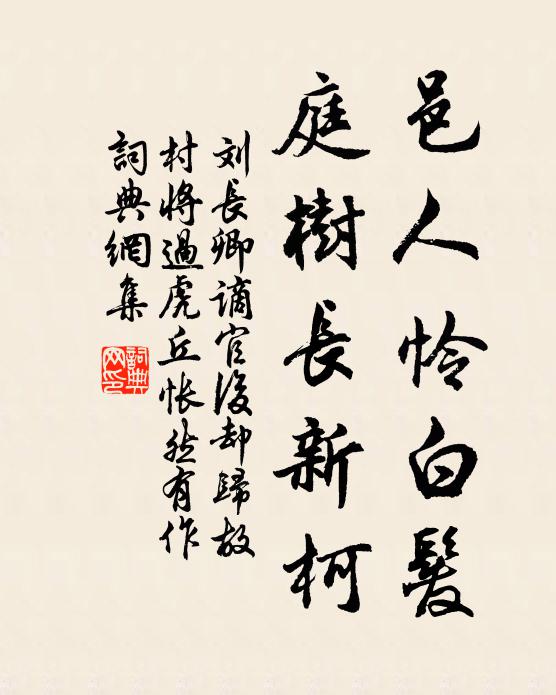 邑人怜白髮
庭樹長新柯
刘長卿謫官後却歸故
村將過虎丘悵然有作
詞典網集
詞典
网印